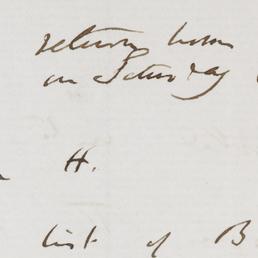 return home
on Saturday
H.
list of B